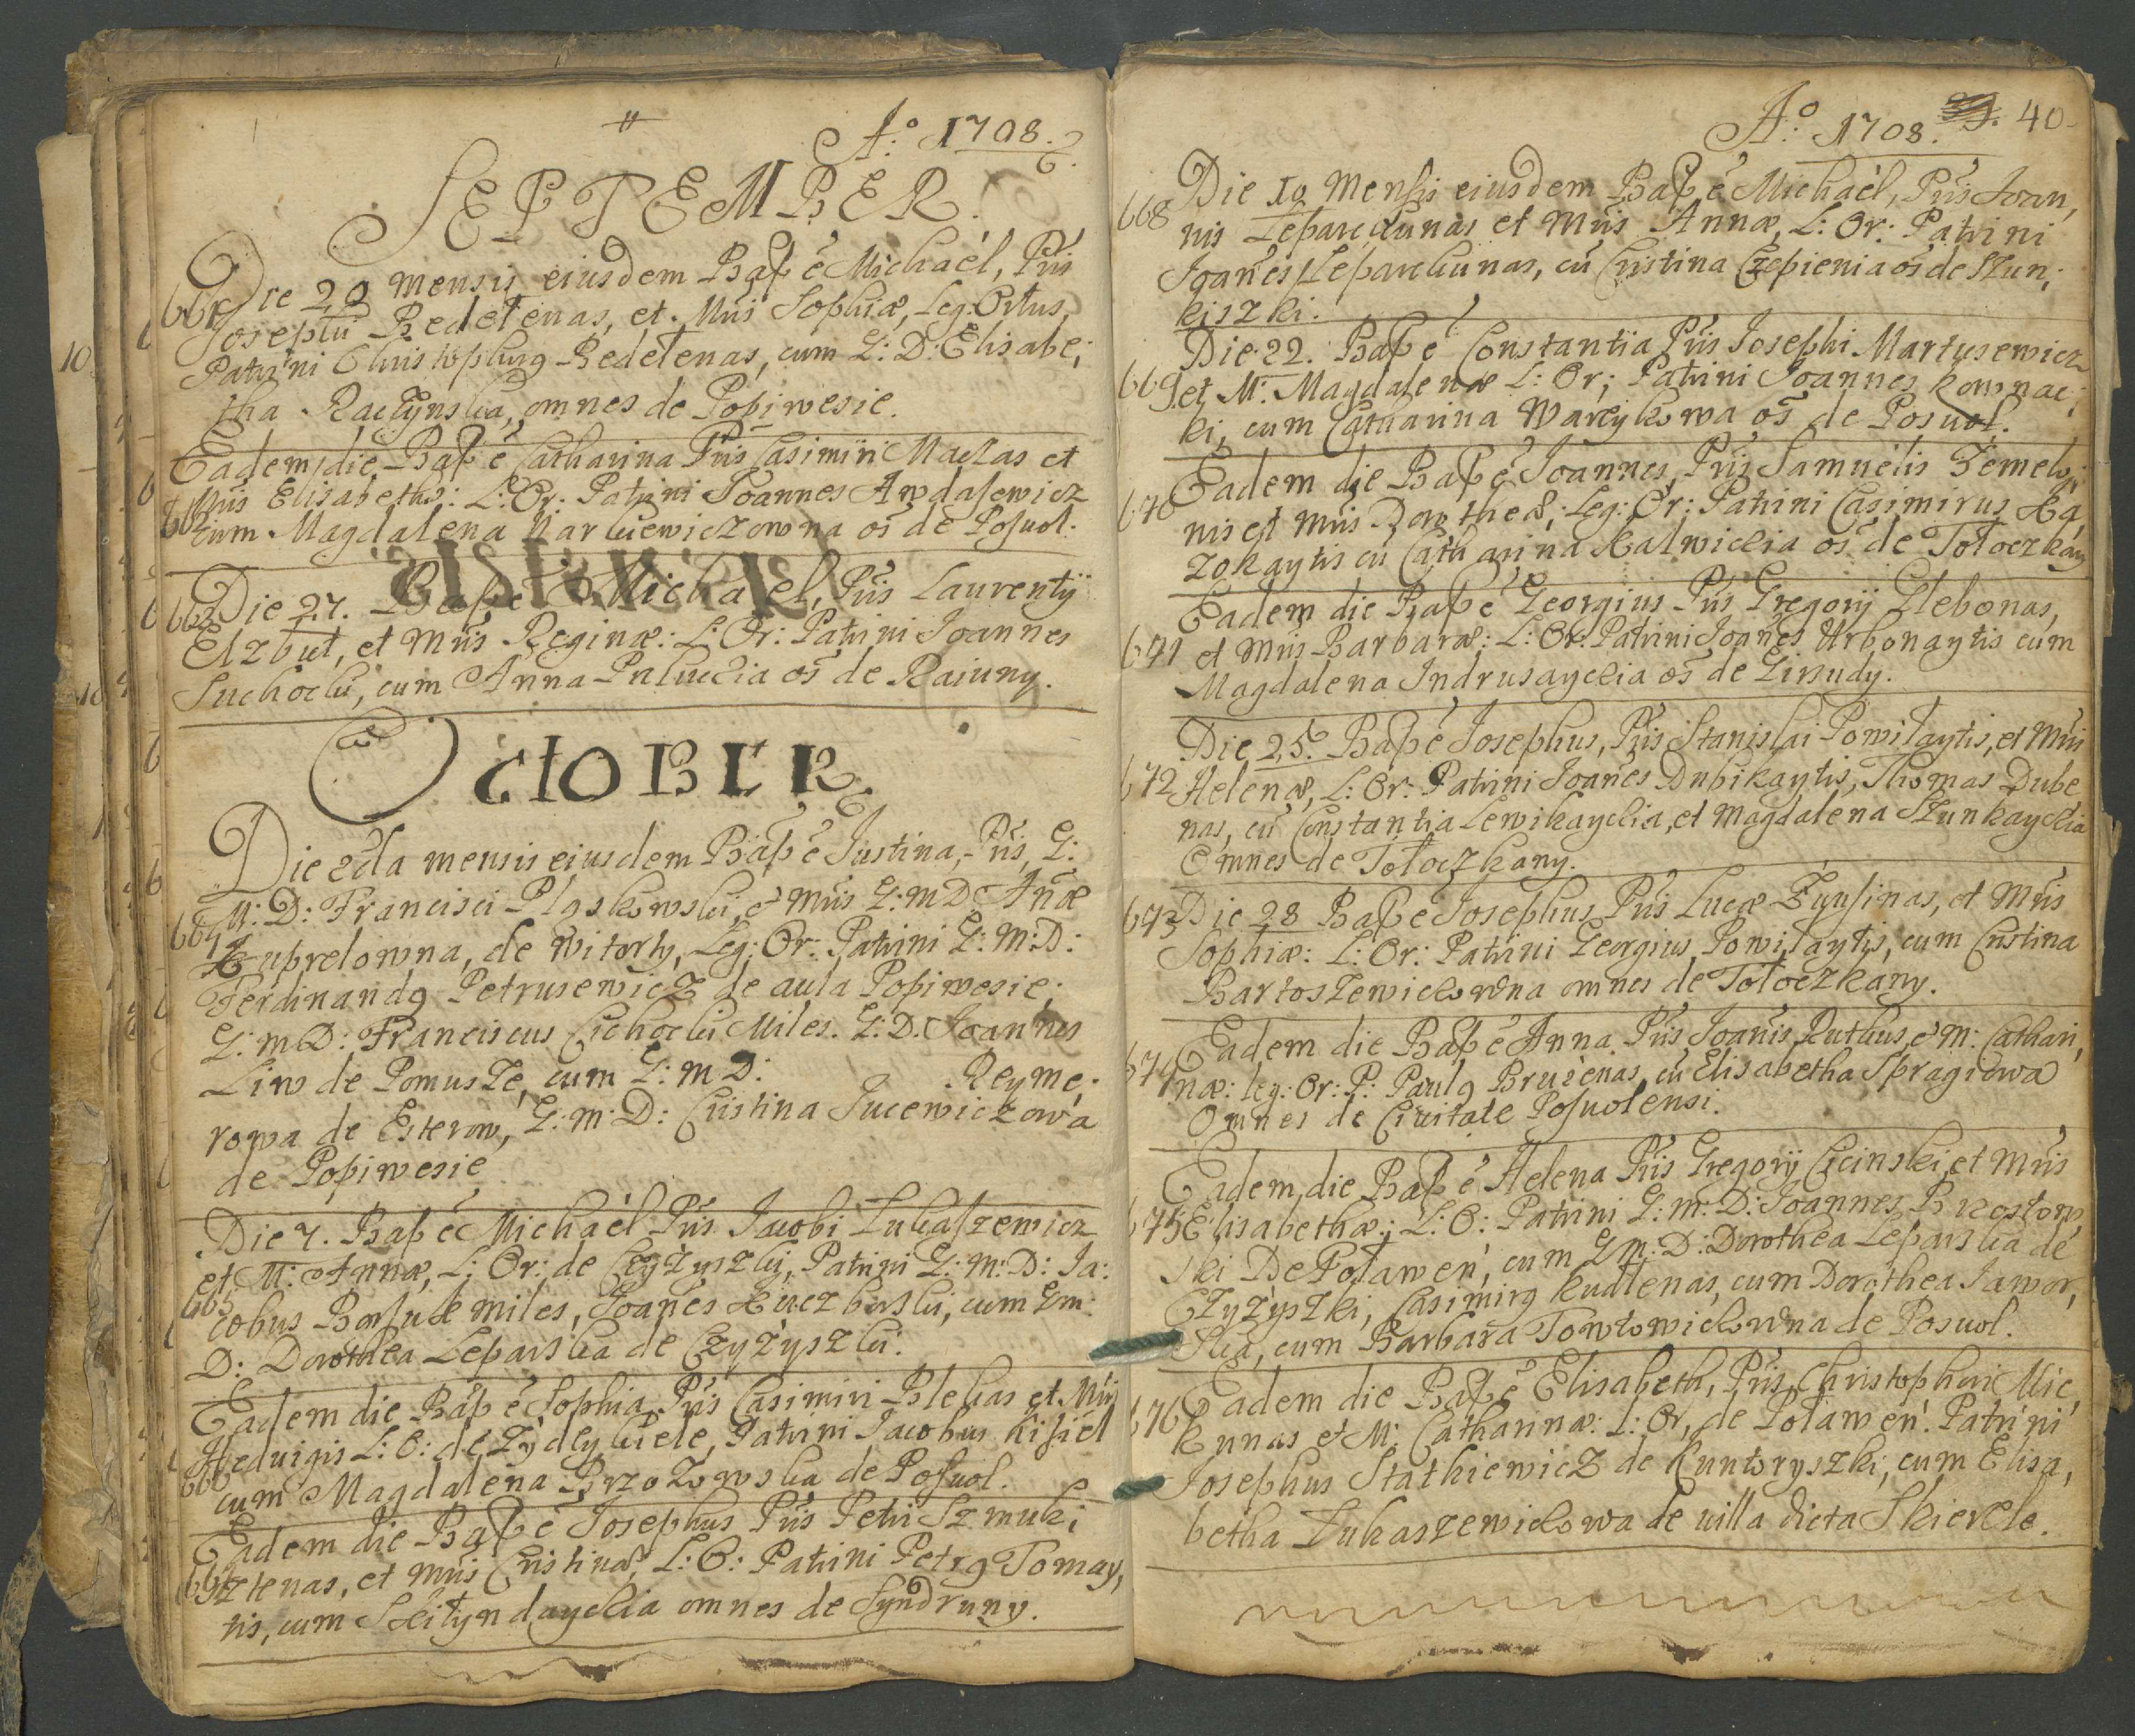 Aº: 1708.
SEPTEMBER.
661 Die 20 mensis eiusdem Bap: ē Michaël, Pris
Josephi Redelenas, et Mris Sophiæ, Leg: Ortus,
Patrini Christophorg Redelenas, cum G: D: Elisabe;
tha Raczynska, omnes de Popiwesie.
Eadem die Bap: ē Catharina Pris Casimiri Maczas et
662 Mris Elisabethæ: L: Or: Patrini Joannes
cum Magdalena Narkiewiczowna oš de Posuol.
663 Die 27. Bap: ē Michaël, Pris Laurentÿ
Elzbut, et Mris Reginæ: L: Or: Patrini Joannes
Suchocki, cum Anna oš de Raiuny.
OCTOBER.
Die 2da mensis eiusdem Bap: ē Justina, Pris, G:
M: D: Francisci Pląskowski, et Mris G: m D Añæ
664 de Witorty, Leg: Or: Patrini G: M: D:
Ferdinandg Petrusewicz de aula Popiwesie;
G: m D: Franciscus Cichocki Miles. G: D. Joannes
Liw de Pomusze, cum G: M D: Reyme;
rowa de Esterow, G: m: D: Cristina Sucewiczowa
de Popiwesie
Die 7. Bap: ē Michaël Pris Jacobi Lukaszewicz
et M: Annæ, L: Or: de Czyżyszki, Patrini G: m: D: Ja:
665 cobus miles, Joañes cum Gm:
D: Dorothea Leparska de Czyżyszki.
Eadem die Bap: ē Sophia, Pris Casimiri Blekas et Mris
Heduigis L: O: de Patrini Jacobus Kisiel
666 cum Magdalena Brzozowska de Posuol.
Eadem die Bap: ē Josephus Pris Petri Szmuk;
667 sztenas, et Mris Cristinæ, L: O: Patrini Petrg Tomay,
tis, cum omnes de Syndruny.
Aº: 1708. 40
668 Die 19 Mensis eiusdem Bap: ē Michaël, Pris Joan,
nis Leparckunas et Mris Annæ, L: Or: Patrini
Joañes Leparckunas, cū Cristina Czepienia oš de Szun;
kiszki.
Die 22. Bap: ē Constantia Pris Josephi Martusewicz
669 et M: Magdalenæ L: Or; Patrini Joannes Kownac;
ki, cum Catharina Wareykowa oš de Posuol.
Eadem die Bap: ē Joannes, Pris Samuelis Gemelw;
670 nis et Mris Dorotheæ, Leg: Or: Patrini Casimirus
zokaytis cū Catharina Kalwickia oš de Tołoczkany
Eadem die Bap: ē Georgius Pris Gregorÿ Glebonas,
671 et Mris Barbaræ: L: Or: Patrini Joañes Urbonaytis cum
Magdalena Indrusayckia oš de Girsudy.
Die 25. Bap: ē Josephus, Pris Stanislai Powiłaytis, et Mris
672 Helenæ, L: Or: Patrini Joañes Dubikaytis, Thomas Dube
nas, cū Constantia Lewikayckia, et Magdalena Szunkayckia
Omnes de Tołoczkany.
673 Die 28 Bap: ē Josephus Pris Lucæ et Mris
Sophiæ: L: Or: Patrini Georgius Powiłaytis, cum Cristina
Bartoszewickowna omnes de Tołoczkany.
Eadem die Bap: ē Anna Pris Joanis Ruthus, et M: Cathari,
674 næ: leg: Or: P: Paulg Bruzenas, cū Elisabetha Spragiowa
Omnes de Ciuitate Posuolensi.
Eadem die Bap: ē Helena Pris Gregorÿ Cicinski, et Mris
675 Elisabethæ; L: O: Patrini G: m: D: Joannes Brzostow,
ski De Poławeń, cum G m: D: Dorothea Leparska de
Czyżyszki, Casimirg Kudlenas, cum Dorothea Jawor,
ska, cum Barbara Towtowickowna de Posuol.
676 Eadem die Bap: ē Elisabeth, Pris Christophori Mic,
kunas et M: Catharinæ: L: Or, de Poławeń. Patrini
Josephus Stathiewicz de Kuntoryszki, cum Elisa,
betha Lukaszewickowa de uilla dicta Skierele.